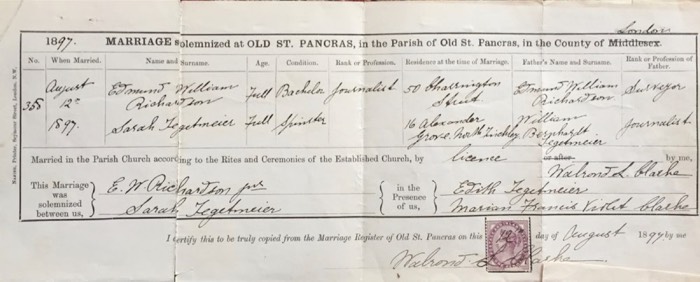 1897. MARRIAGE solemnized at OLD ST. PANCRAS, in the Parish of Old St. Pancras, in the County of Middlesex. London
No. When Married. Name and Surname. Age. Condition. Rank or Profession. Residence at the time of Marriage. Father's Name and Surname. Rank or Profession of Father.
358 August 12th 1897. Edmund William Richardson Full Bachelor Journalist 50 Charrington Street Edmund William Richardson Surveyor
Sarah Tegetmeier Full Spinster 16 Alexander Grove North Finchley William Bernhardt Tegetmeier Journalist
Married in the Parish Church according to the Rites and Ceremonies of the Established Church, by licence or after by me,
Walrond L. Clarke
This Marriage was solemnized between us, E. W. Richardson jnr Sarah Tegetmeier in the Presence of us, Edith Tegetmeier Marian Francis Violet Clarke
I certify this to be truly copied from the Marriage Register of Old St. Pancras on this 12 day of August 1897 by me
Walrond L. Clarke